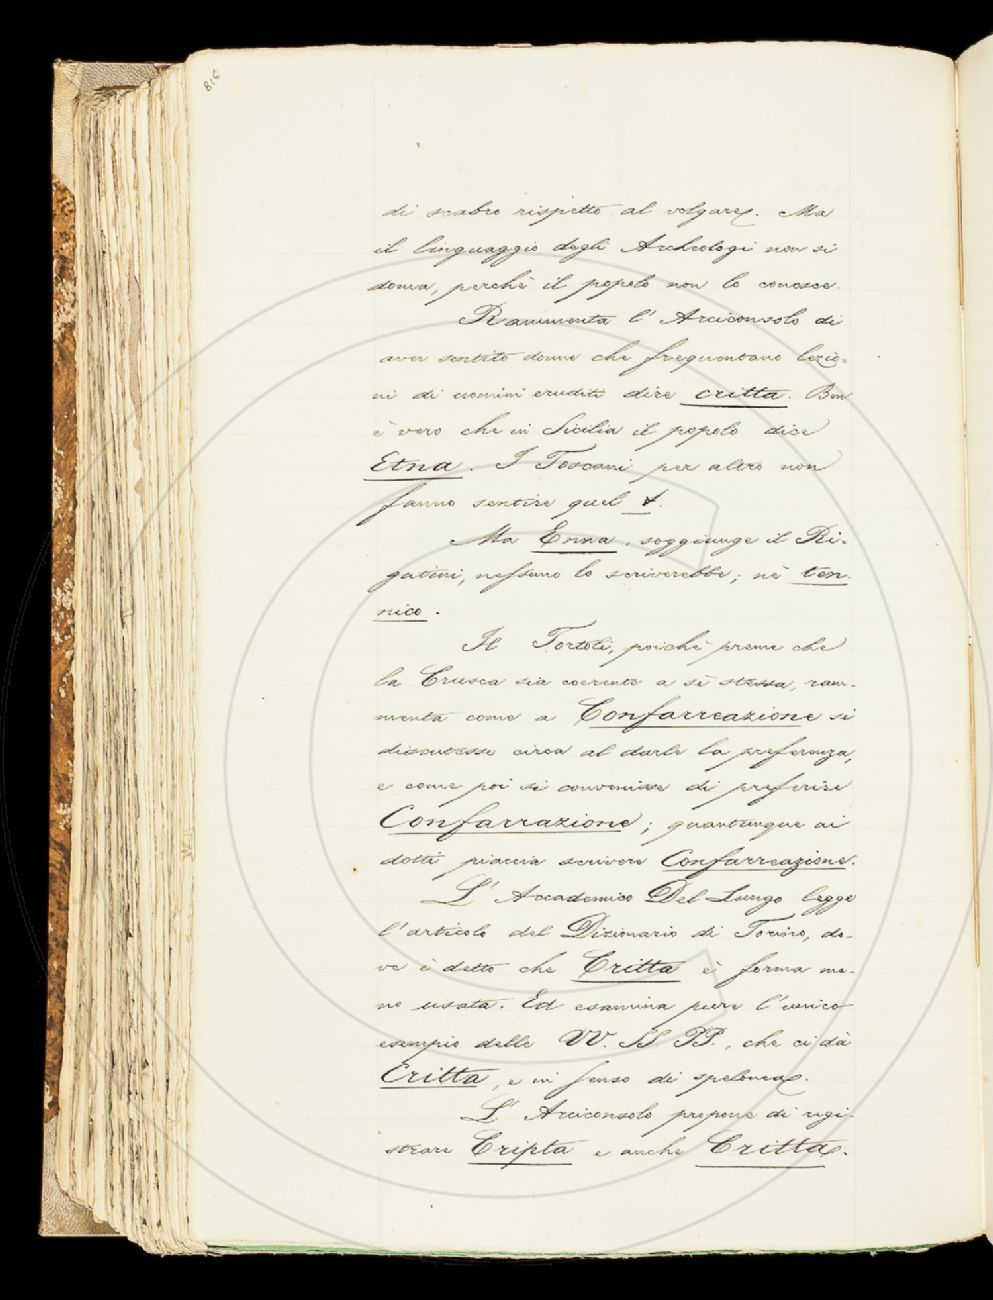 818
di scabro rispetto al volgare. Ma
il linguaggio degli Archeologi non si
doma, perchè il popolo non lo conosce.
Rammenta l'Arciconsolo di
aver sentito donne che frequentano lezio-
ni di uomini eruditi dire critta. Ben
è vero che in Sicilia il popolo dice
Etna. I Toscani per altro non
fanno sentire quel t.
Ma Enna, soggiunge il Ri-
gutini, nessuno lo scriverebbe; nè ten-
nico.
Il Tortoli, poichè preme che
la Crusca sia coerente a sè stessa, ram-
menta come a Confarreazione si
discutesse circa al darle la preferenza,
e come poi si convenisse di preferire
Confarrazione; quantunque ai
dotti piaccia scrivere Confarreazione.
L'Accademico Del Lungo legge
l'articolo del Dizionario di Torino, do-
ve è detto che Critta è forma me-
no usata. Ed esamina pure l'unico
esempio delle VV. SS. PP., che ci dà
Critta, e in senso di spelonca.
L'Arciconsolo propone di regi-
strare Cripta e anche Critta.